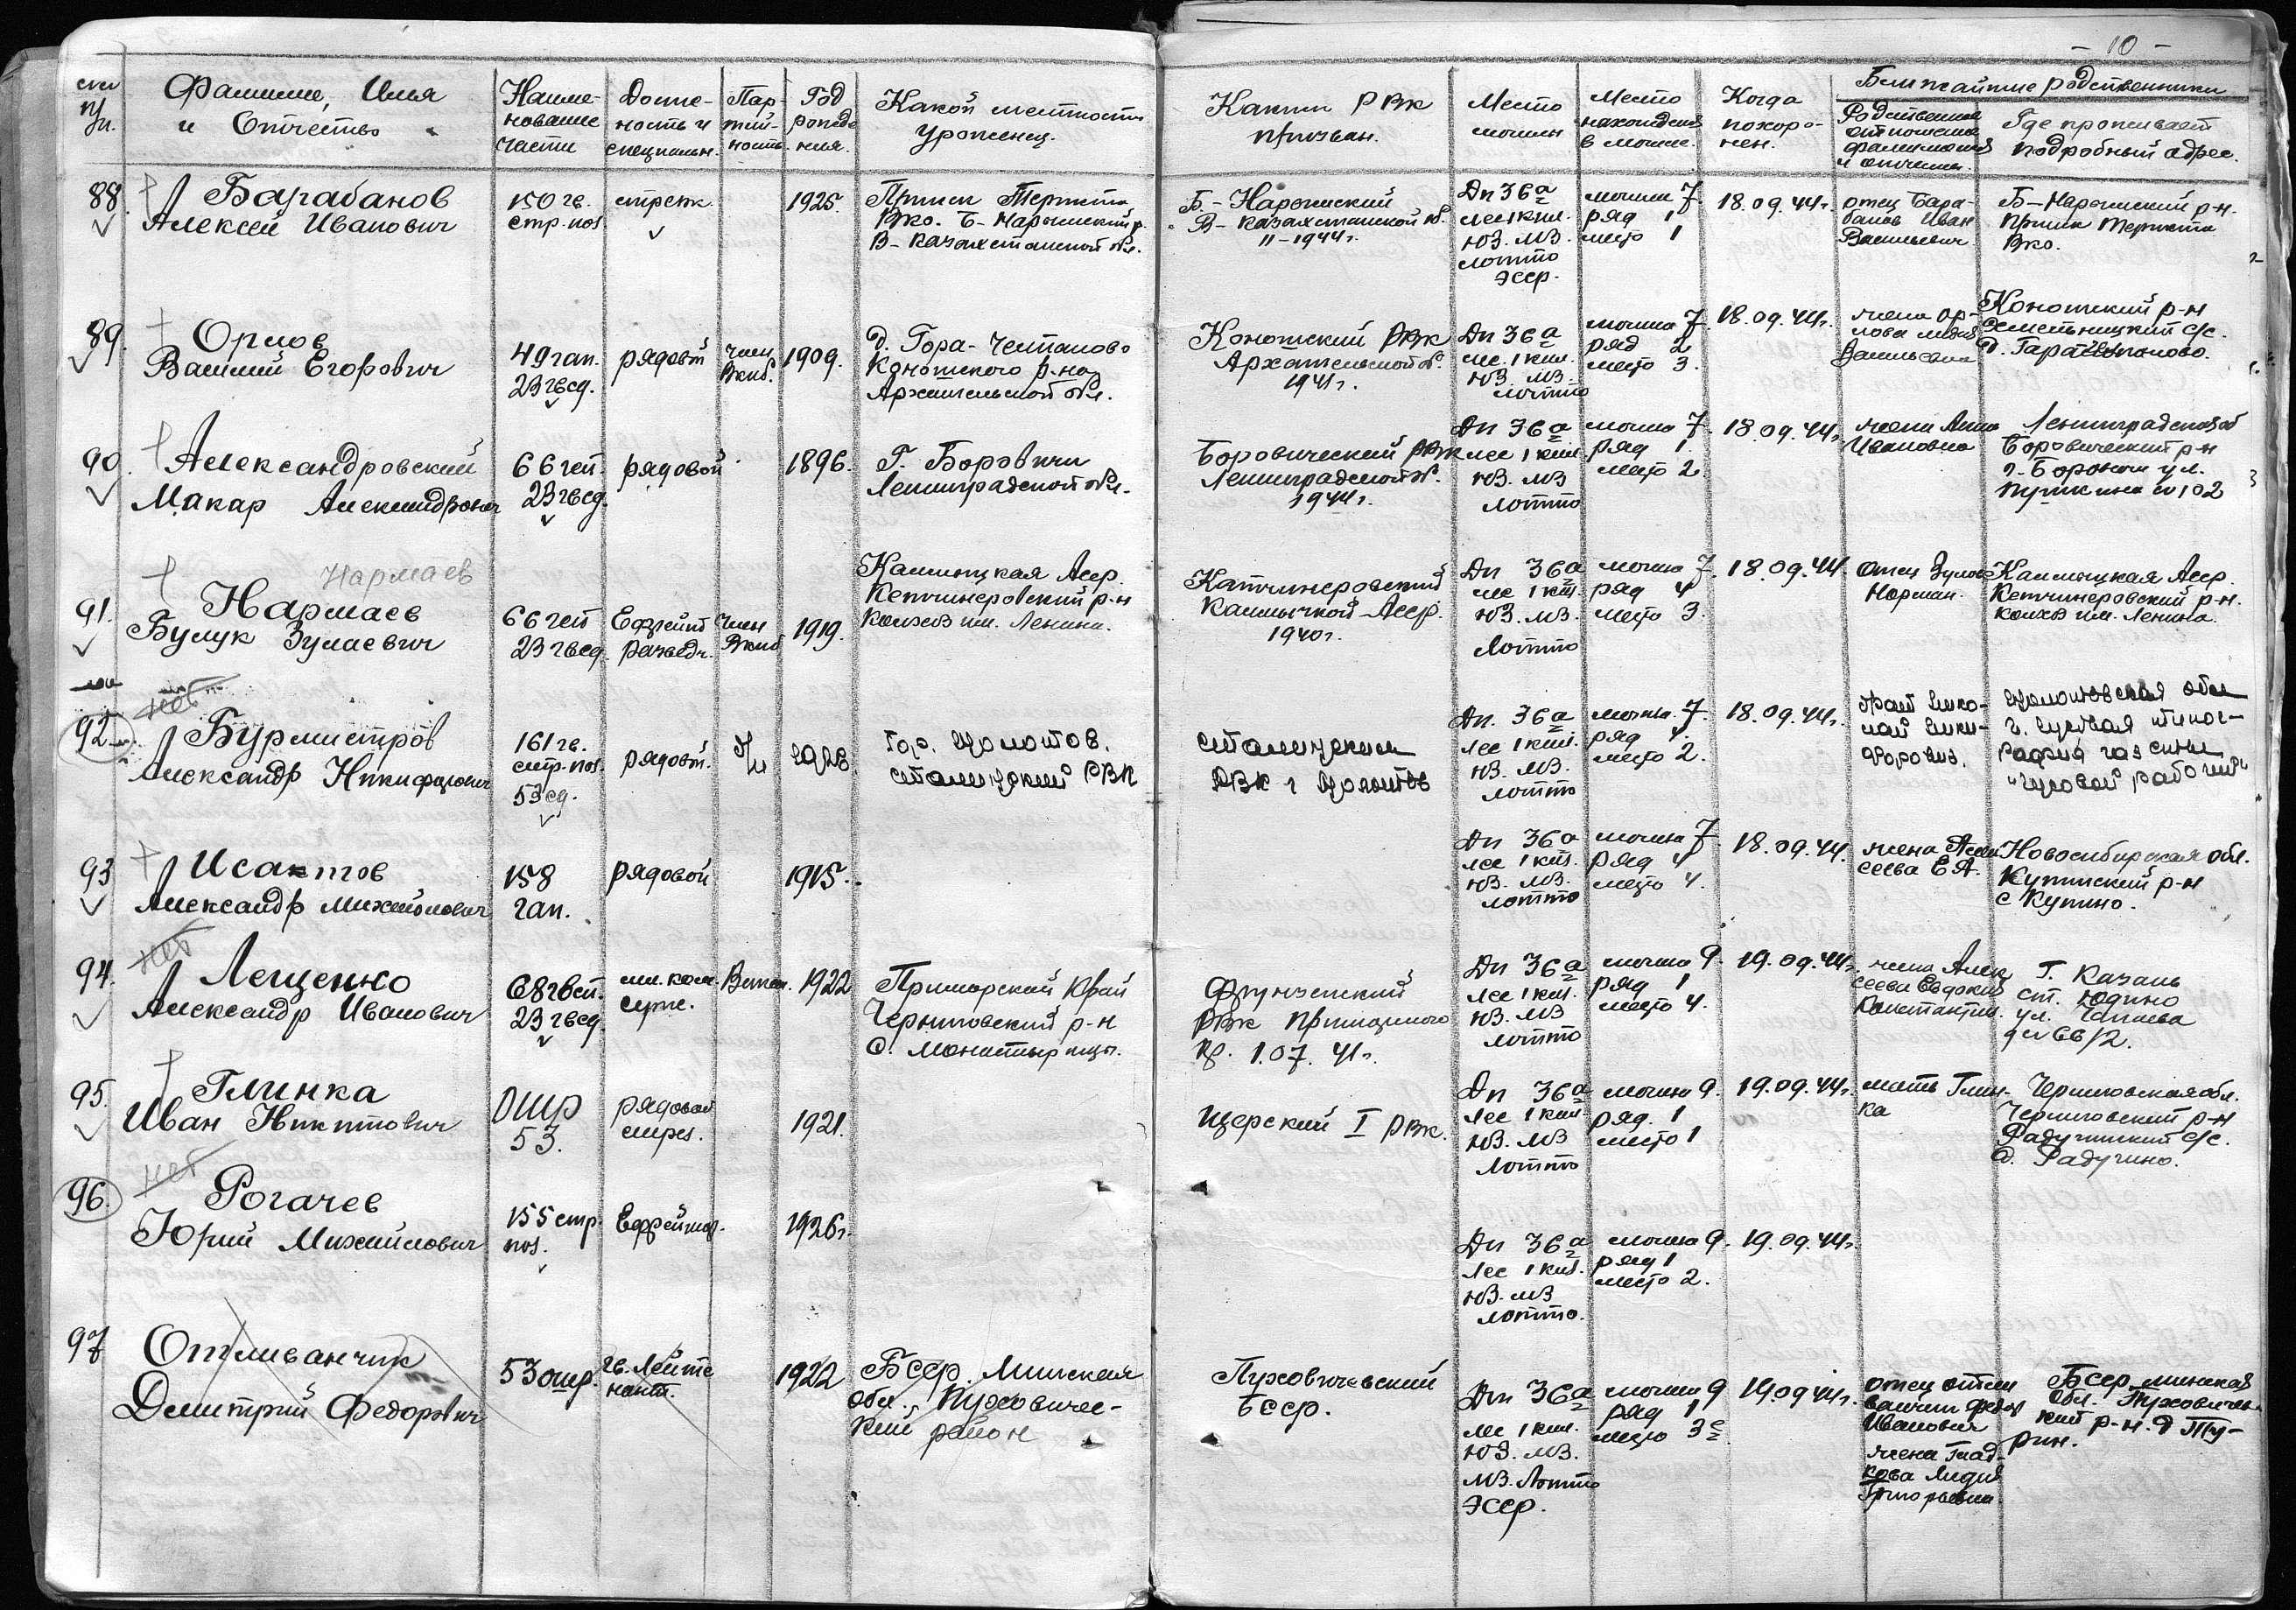 - 10 -
п/п.
Фамилие, Имя
и Отчество
Наиме-
нование
части
Долж-
ность и
специальн.
Пар-
тий-
ность
Год
рожде
ния.
Какой местности
уроженец.
Каким РВК
призван.
Место
могилы
Место
нахождения
в могиле.
Когда
похоро-
нен.
Ближайшие родственники
Родственное
отношение
фамилия имя
и отчество.
Где проживает
подробный адрес.
88.
Барабанов
Алексей Иванович
150 гв.
стр. пол
стрелк.
1925.
Прииск Теректы
ВКО. Б-Нарымский р.
В-Казахстанской обл.
Б.-Нарымский
В-Казахстанской об.
11-1944г.
Дп 36а
лес 1 км.
ЮВ. МВ.
Лотто
Эсср.
могила 7.
ряд 1
место 1
18.09.44г.
отец Бара-
банов Иван
Васильевич
Б-Нарымский р-н.
Прииск Теректы
ВКО.
89.
Орлов
Василий Егорович
49 гап.
23 гвсд.
рядовой
член
Вкпб.
1909.
д. Гора-Чепаново
Коношского р-на
Архангельской обл.
Коношский РВК
Архангельской об.
1941г.
Дп 36а
лес. 1 км.
ЮВ. МВ.
Лотто
могила 7.
ряд 2
место 3.
18.09.44г.
жена Ор-
лова Лидия
Васильевна
Коношский р-н
с/с.
90.
Александровский
Макар Александрович
66 гсп.
23 гвсд.
рядовой
1896.
Г. Боровичи
Ленинградской обл.
Боровический РВК
Ленинградской об.
1944г.
Дп 36а
лес 1 км.
ЮВ. МВ
Лотто
могила 7.
ряд 1.
место 2.
18.09.44г.
жена Анна
Ивановна
Ленинградская об
Боровический р-н
г. Боровичи ул.
Пушкина 102
Нармаев
91.
Нармаев
Булук Зулаевич
66 гсп
23 гвсд.
Ефрейт
разведч.
член
Вкпб
1919.
Калмыцкая Асср.
Кетчинеровский р-н
колхоз им. Ленина.
Катчинеровский
Калмыцкой Асср.
1940г.
Дп 36а
лес 1 км
ЮВ. МВ.
Лотто
могила 7.
ряд 4
место 3.
18.09.44.
Отец Зулаев
Норман.
Калмыцкая Асср.
Кетчинеровский р-н.
колхоз им. Ленина.
нет
92
Бурмистров
Александр Никифорович
161 гв.
стр. пол
53 сд.
рядовой.
1928.
Гор. Молотов.
Сталинский РВК
Сталинским
РВК г Молотов
Дп. 36а
лес 1 км.
ЮВ. МВ.
Лотто
могила 7.
ряд 4.
место 2.
18.09.44г.
брат Нико-
лай Ники-
форович.
Молотовская обл
г. Чусовая типог-
рафия газеты
"Чусовой рабочий"
93
Исактов
Александр Михайлович
158
гап.
рядовой
1915.
Дп 36а
лес 1 км.
ЮВ. МВ.
Лотто
могила 7.
ряд 4
место 4.
18.09.44.
жена Алек
сеева Е А.
Новосибирская обл.
Купинский р-н
с Купино.
нет
94.
Лещенко
Александр Иванович
68 гвсп.
23 гвсд.
мл. ком.
серж.
1922
Приморский край
Черниговский р-н
с. Монастырищи.
Фрунзенский
РВК Приморского
кр. 1.07.41г.
Дп 36а
лес 1 км.
ЮВ. МВ
Лотто
могила 9.
ряд 1
место 4.
19.09.44г.
жена Алек
сеева Евдокия
Константин.
Г. Казань
ст. Юдино
ул. Чапаева
д 66/2.
95.
Глинка
Иван Никитович
ОШР
53.
рядовой
стрел.
1921.
Щерский I РВК.
Дп 36а
лес 1 км.
ЮВ. МВ
Лотто
могила 9.
ряд. 1
место 1
19.09.44г.
мать Глин-
ка
Черниговская обл.
Черниговский р-н
с/с.
нет
96.
Рогачев
Юрий Михайлович
155 стр.
пол.
Ефрейтор.
1926г.
Дп 36а
лес 1 км.
ЮВ. МВ
Лотто.
могила 9.
ряд 1
место 2.
19.09.44г.
97
Отливанчик
Дмитрий Федорович
53 ошр.
гв. Лейте
нант.
1922
Бсср. Минская
обл., Пуховичес-
кий район
Пуховичевский
Бсср.
Дп 36а
лес 1 км.
ЮВ. МВ.
МВ. Лотто
Эсср.
могила 9
ряд 1
место 3е
19.09.44г.
отец Отли
ванчик Федор
Иванович
жена Глад-
кова Лидия
Григорьевна
Бсср минская
обл. Пуховичес-
кий р-н. д Ту-
рин.